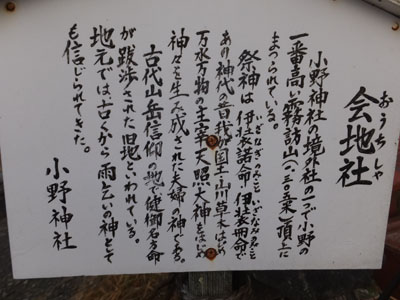 おうちしゃ
会地社
小野神社の境外社の一で小野の
一番高い霧訪山(一三〇五米)頂上に
まつられている。
いざなぎのみこと いざなみのみこと
祭神は 伊弉諾命 伊弉冊命で
あり神代の昔我が国土山川草木はじめ
万水万物の主宰天照大神をはじめ
神々を生み成された夫婦の神である。
古代山岳信仰の地健御名方命
が跋渉された旧地といわれている。
地元では、古くから雨乞いの神として
も信じられてきた。
小野神社